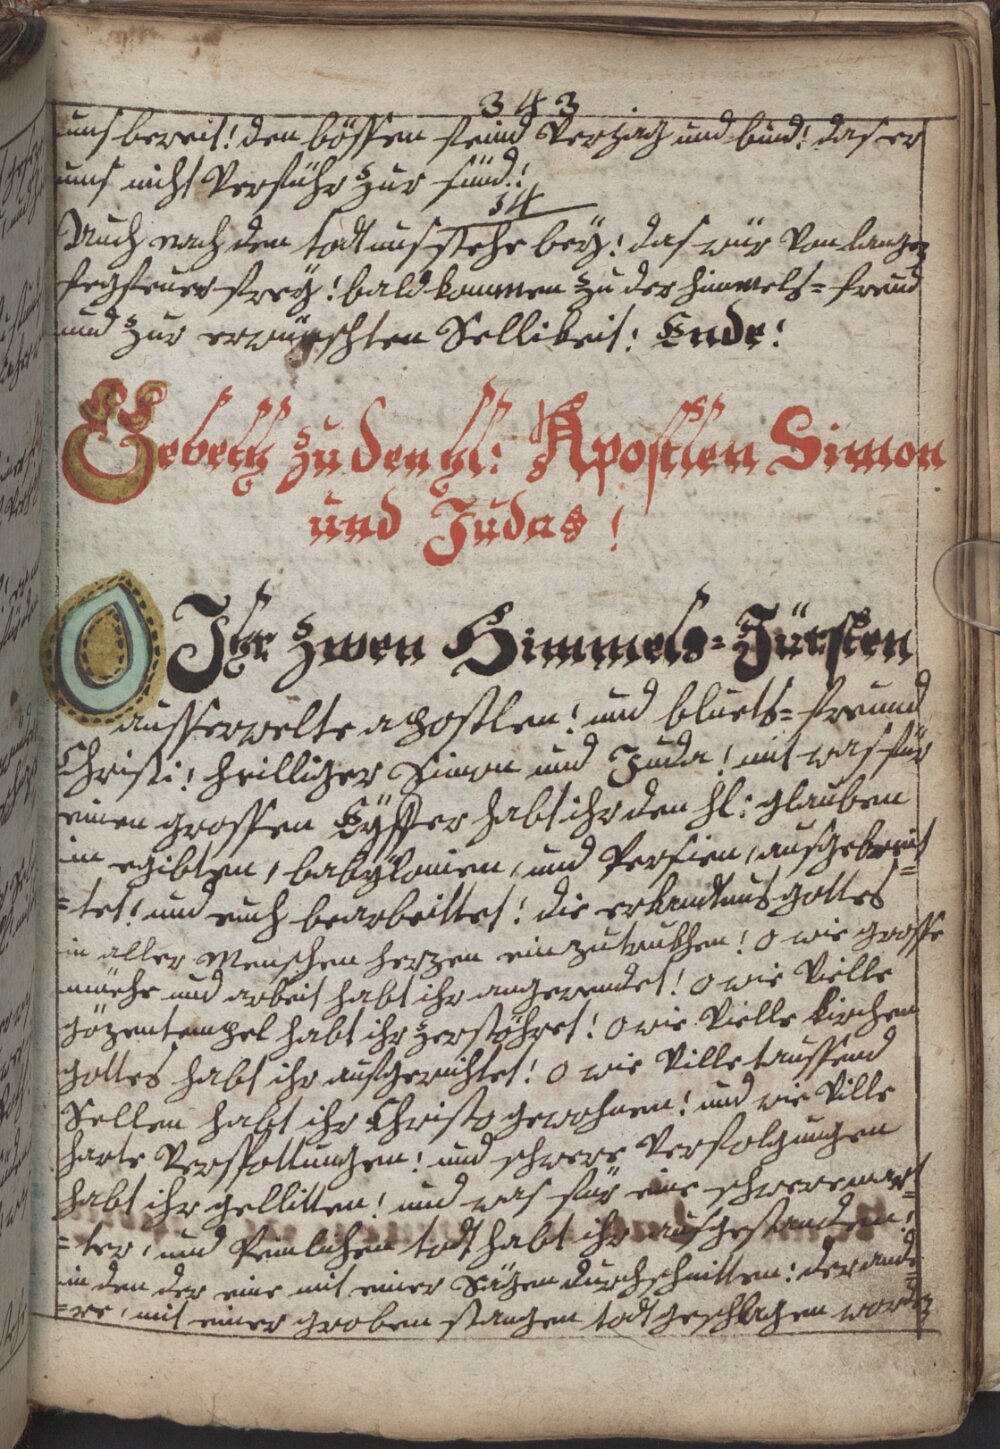 343
uns bereit! den bössen feind Verjag und bind! das er
uns nicht Verführ zur sünd!
34
Auch nach den todt uns stehe beÿ! das wür Von langen
fegfeuer freÿ! bald kommen zu der himmels=freud
und zur erwünschten Sellikeit: Ende!
Gebett zu den hl: Apostlen Simon
und Judas!
O Ihr zwen Himmels=Fürsten
ausserwelte apostlen! und bluets=freund
Christi! heilliger Simon und Juda! mit was für
einen grossen Eÿffer habt ihr den hl: glauben
in egibten, babÿlonien, und Persien, ausgebreit
=tet! und euch bearbeittet! die erkandtnus gottes
in aller Menschen herzen ein zutrukhen! o wie grosse
müehe und arbeit habt ihr angewendet! o wie Vielle
gözentempel habt ihr zerstöhret! o wie Vielle kirchen
gottes habt ihr aufgerichtet! o wie Ville taussend
Sellen habt ihr Christo gewohnen! und wie Ville
harte Verspottungen! und schwere Verfolgungen
habt ihr gellitten! und was für eine schwere mar=
=ter, und Peinlichen todt habt ihr ausgestanden!
in den der eine mit einer Sägen durchschnitten: der ande
=re, mit einer groben stangen todt geschlagen worden